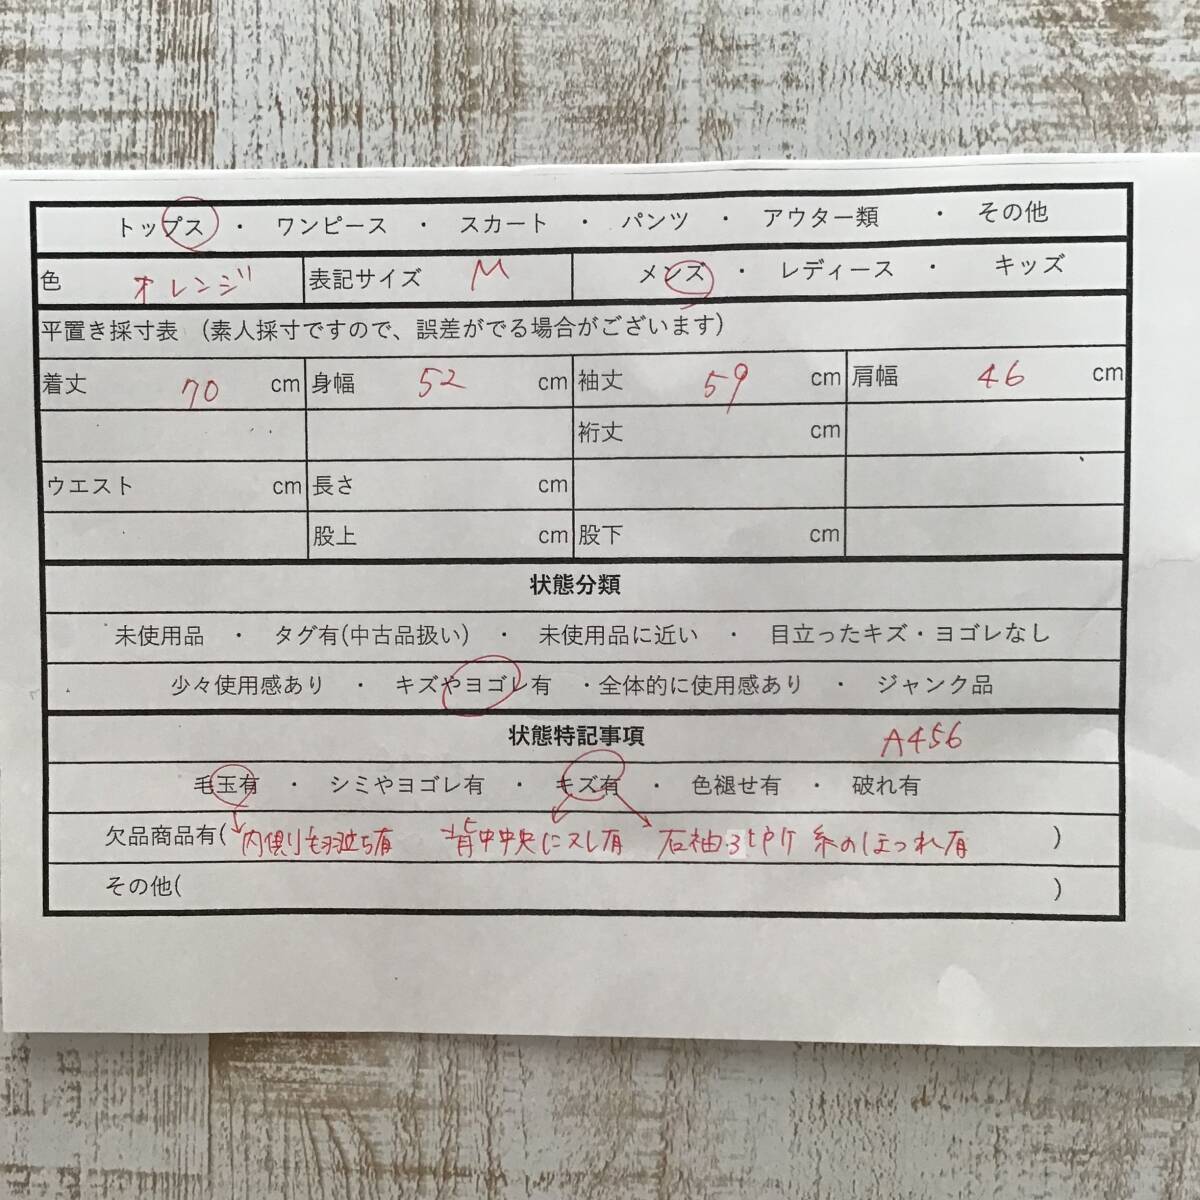 トップス ・ ワンピース ・ スカート ・ パンツ ・ アウター類 ・ その他
色 オレンジ 表記サイズ M メンズ ・ レディース ・ キッズ
平置き採寸表 （素人採寸ですので、誤差がでる場合がございます）
着丈 70 cm 身幅 52 cm 袖丈 59 cm 肩幅 46 cm
裄丈 cm
ウエスト cm 長さ cm
股上 cm 股下 cm
状態分類
未使用品 ・ タグ有(中古品扱い) ・ 未使用品に近い ・ 目立ったキズ・ヨゴレなし
少々使用感あり ・ キズやヨゴレ有 ・全体的に使用感あり ・ ジャンク品
状態特記事項 A456
毛玉有 ・ シミやヨゴレ有 ・ キズ有 ・ 色褪せ有 ・ 破れ有
欠品商品有( 内側り毛羽立ち有 背中中央にスレ有 右袖 糸のほつれ有 )
その他( )